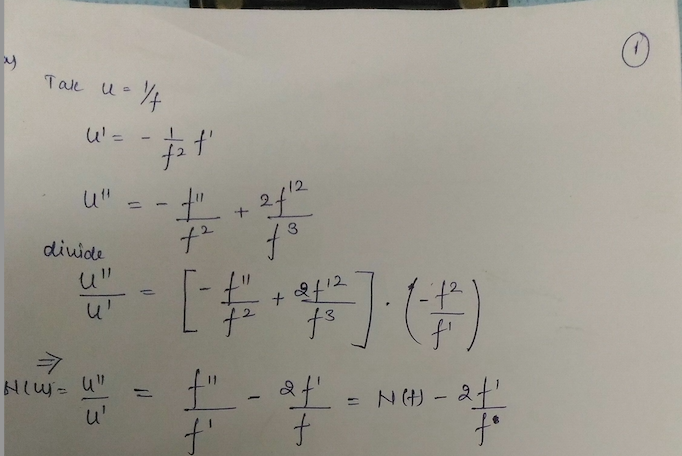 ①
a)
Take u = 1/f
u' = - 1/f² f'
u'' = - f''/f² + 2f'²/f³
divide
u''/u' = [- f''/f² + 2f'²/f³] · (-f²/f')
⇒
N(u) = u''/u' = f''/f' - 2f'/f = N(f) - 2f'/f